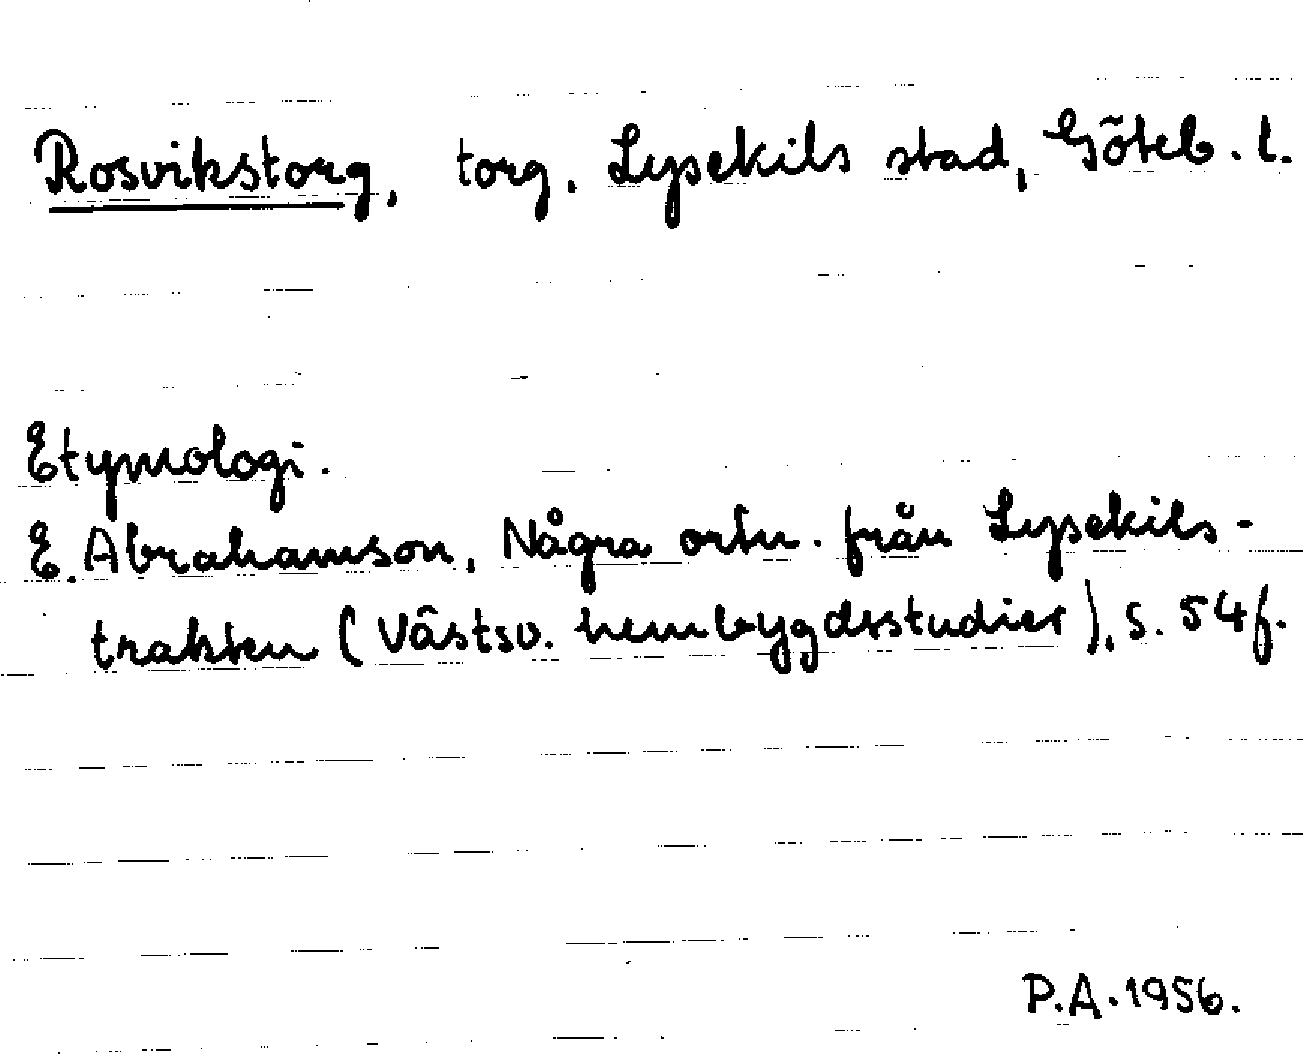 Rosvikstorg, torg. Lysekils stad, Göteb. l.
Etymologi.
E. Abrahamson, Några ortn. från Lysekils-
trakten (Västsv. hembygdsstudier), s. 54f.
P.A. 1956.